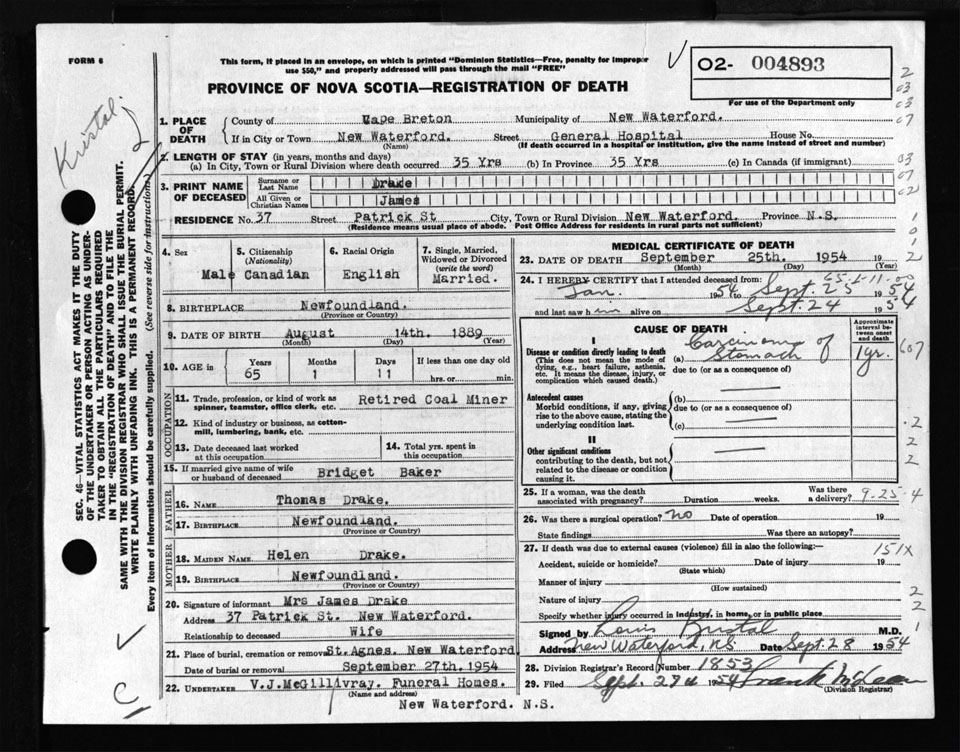 FORM 6
This form, if placed in an envelope, on which is printed "Dominion Statistics—Free, penalty for improper
use $50," and properly addressed will pass through the mail "FREE"
O2- 004893
For use of the Department only
PROVINCE OF NOVA SCOTIA—REGISTRATION OF DEATH
1. PLACE OF DEATH
County of Cape Breton Municipality of New Waterford.
If in City or Town New Waterford. Street General Hospital House No.
(Name) (If death occurred in a hospital or institution, give the name instead of street and number)
2. LENGTH OF STAY (in years, months and days)
(a) In City, Town or Rural Division where death occurred 35 Yrs (b) In Province 35 Yrs (c) In Canada (if immigrant)
3. PRINT NAME OF DECEASED
Surname or Last Name Drake
All Given or Christian Names James
RESIDENCE No. 37 Street Patrick St City, Town or Rural Division New Waterford. Province N.S.
(Residence means usual place of abode. Post Office Address for residents in rural parts not sufficient)
4. Sex Male
5. Citizenship (Nationality) Canadian
6. Racial Origin English
7. Single, Married, Widowed or Divorced (write the word) Married.
8. BIRTHPLACE Newfoundland.
(Province or Country)
9. DATE OF BIRTH August 14th. 1889
(Month) (Day) (Year)
10. AGE in Years 65 Months 1 Days 11 If less than one day old hrs. or min.
OCCUPATION
11. Trade, profession, or kind of work as spinner, teamster, office clerk, etc. Retired Coal Miner
12. Kind of industry or business, as cotton-mill, lumbering, bank, etc.
13. Date deceased last worked at this occupation
14. Total yrs. spent in this occupation
15. If married give name of wife or husband of deceased Bridget Baker
FATHER
16. NAME Thomas Drake.
17. BIRTHPLACE Newfoundland.
(Province or Country)
MOTHER
18. MAIDEN NAME Helen Drake.
19. BIRTHPLACE Newfoundland.
(Province or Country)
20. Signature of informant Mrs James Drake
Address 37 Patrick St. New Waterford.
Relationship to deceased Wife
21. Place of burial, cremation or removal St.Agnes. New Waterford
Date of burial or removal September 27th.1954
22. UNDERTAKER V.J.McGillivray. Funeral Homes.
(Name and address)
New Waterford. N.S.
MEDICAL CERTIFICATE OF DEATH
23. DATE OF DEATH September 25th. 1954 19
(Month) (Day) (Year)
24. I HEREBY CERTIFY that I attended deceased from:
Jan. 1954 to Sept. 25 1954
and last saw him alive on Sept. 24 1954
CAUSE OF DEATH
Approximate interval between onset and death
I
Disease or condition directly leading to death
(This does not mean the mode of dying, e.g., heart failure, asthenia, etc. It means the disease, injury, or complication which caused death.)
(a) Carcinoma of Stomach 1 yr.
due to (or as a consequence of)
Antecedent causes
Morbid conditions, if any, giving rise to the above cause, stating the underlying condition last.
(b)
due to (or as a consequence of)
(c)
II
Other significant conditions
contributing to the death, but not related to the disease or condition causing it.
25. If a woman, was the death associated with pregnancy? Duration weeks. Was there a delivery? 9-25-4
26. Was there a surgical operation? no Date of operation 19
State findings Was there an autopsy?
27. If death was due to external causes (violence) fill in also the following:— 151X
Accident, suicide or homicide? Date of injury 19
(State which)
Manner of injury
(How sustained)
Nature of injury
Specify whether injury occurred in industry, in home, or in public place
Signed by M.D.
Address New Waterford, NS Date Sept. 28 1954
28. Division Registrar's Record Number 1853
29. Filed Sept. 29th 1954 Frank McLean
(Division Registrar)
Kristal.
SEC. 46—VITAL STATISTICS ACT MAKES IT THE DUTY
OF THE UNDERTAKER OR PERSON ACTING AS UNDERTAKER
TO OBTAIN ALL THE PARTICULARS REQUIRED
IN THE "REGISTRATION OF DEATH" AND TO FILE THE
SAME WITH THE DIVISION REGISTRAR WHO SHALL ISSUE THE BURIAL PERMIT.
WRITE PLAINLY WITH UNFADING INK. THIS IS A PERMANENT RECORD.
Every item of Information should be carefully supplied. (See reverse side for instructions.)